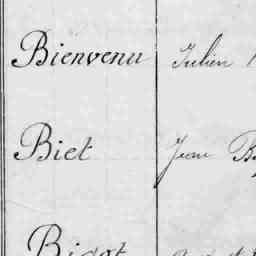 Bienvenu Julien
Biet Jean
Bigot